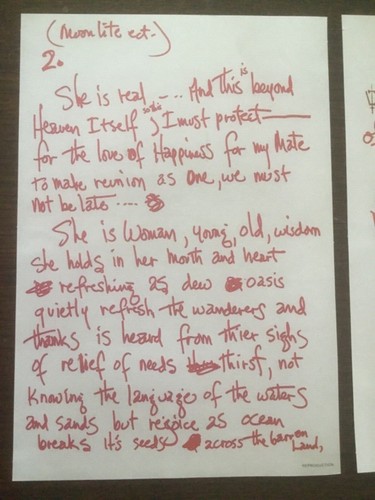 (Moonlite ect.)
2.
She is real ---. And this is beyond
Heaven Itself so this I must protect
for the love of Happiness for my Mate
to make reunion as One, we must
not be late ....
She is Woman, young, old, wisdom
she holds in her mouth and heart
refreshing as dew oasis
quietly refresh the wanderers and
thanks is heard from thier sighs
of relief of needs thirst, not
knowing the language of the waters
and sands but rejoice as ocean
breaks it's seeds across the barren Land,